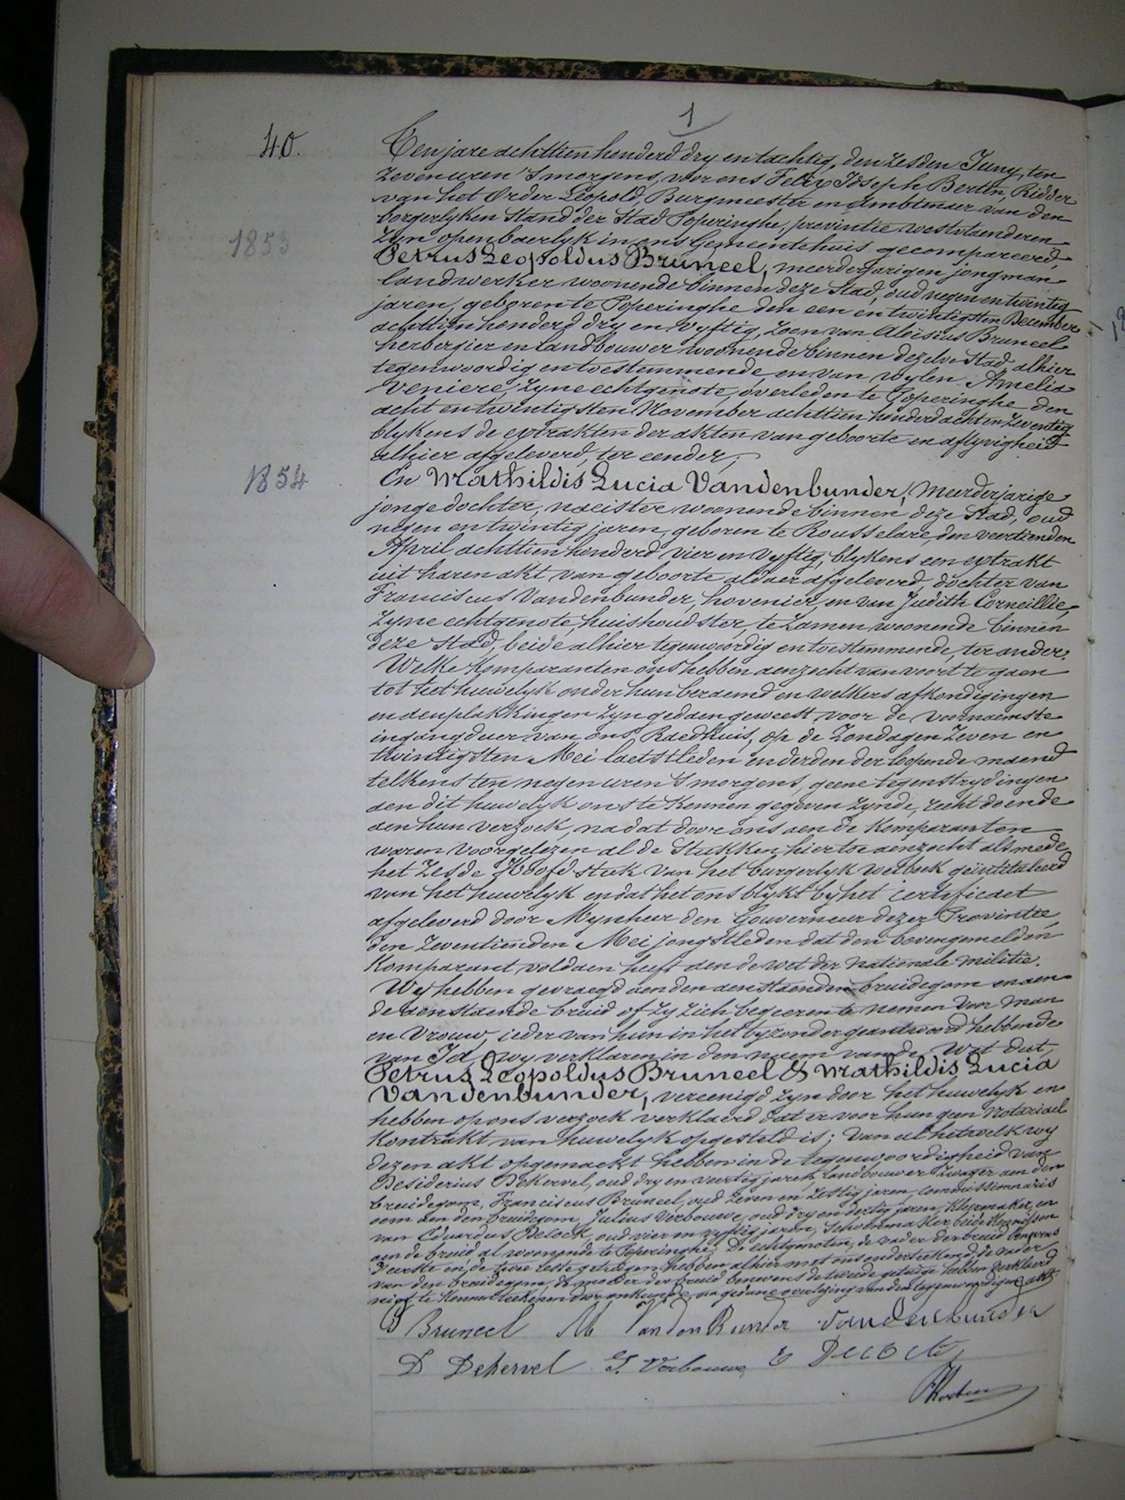 1
40.
Ten jare achttien honderd dry en tachtig, den zesden Juny, ten
zeven uren 's morgens, voor ons Felix Joseph Berten, Ridder
van het Order Leopold, Burgmeester en Ambtenaer van den
borgerlyken Stand der Stad Poperinghe, provintie westvlaenderen
zyn openbaerlyk in ons Gemeentehuis gecompareerd,
1853
Petrus Leopoldus Bruneel, meerderjarigen jongman
landwerker woonende binnen deze Stad, oud negen en twintig
jaren, geboren te Poperinghe den een en twintigsten December
achttien honderd dry en vyftig, zoon van Aloïsius Bruneel
herbergier en Landbouwer woonende binnen dezelve Stad, alhier
tegenwoordig en toestemmende, en van wylen Amelia
Veniere, zyne echtgenote, overleden te Poperinghe den
acht en twintigsten November achttien honderd acht en zeventig
blykens de extrakten der akten van geboorte en aflyvigheid
alhier afgeleverd, ter eender,
1854
En Mathildis Lucia Vandenbunder, Meerderjarige
jonge dochter, naeister woonende binnen deze Stad, oud
negen en twintig jaren, geboren te Rousselare den veertienden
April achttien honderd vier en vyftig, blykens een extrakt
uit haren akt van geboorte aldaer afgeleverd, dochter van
Franciscus Vandenbunder, hovenier, en van Judith Corneillie,
zyne echtgenote, huishoudster, te zamen woonende binnen
deze Stad, beide alhier tegenwoordig en toestemmende, ter ander.
Welke komparanten ons hebben aenzocht van voort te gaen
tot het huwelyk onder hun beraemd en welkers afkondigingen
en aenplakkingen zyn gedaen geweest voor de voornaemste
ingangduer van ons Raedhuis, op de Zondagen zeven en
twintigsten Mei laetstleden en derden der loopende maend
telkens ten negen uren 's morgens, geene tegenstrydingen
aen dit huwelyk ons te kennen gegeven zynde, recht doende
aen hun verzoek, na dat door ons aen de Komparanten
waren voorgelezen al de Stukken hiertoe aenzocht alsmede
het Zesde Hoofdstuk van het burgerlyk wetboek geïntituleerd
van het huwelyk en dat het ons blykt by het certificaet
afgeleverd door Mynheer den Gouverneur dezer Provintie,
den zeventienden Mei jongstleden dat den bovengemelden
Komparant voldaen heeft aen de wet der nationale militie.
Wy hebben gevraegd aen den aenstaenden bruidegom en aen
de aenstaende bruid of zy zich begeeren te nemen voor man
en vrouw, ieder van hun in het byzonder geantwoord hebbende
van Ja, wy verklaren in den naem van de Wet dat
Petrus Leopoldus Bruneel & Mathildis Lucia
Vandenbunder, vereenigd zyn door het huwelyk en
hebben op ons verzoek verklaerd dat er voor hun geen Notariael
Kontrakt van huwelyk opgesteld is; van al hetwelk wy
dezen akt opgemaekt hebben in de tegenwoordigheid van
Desiderius Dekervel, oud dry en veertig jaren, landbouwer zwager aen den
bruidegom, Franciscus Bruneel, oud zeven en zestig jaren, commissionnaris
oom aen den bruidegom, Julius Verbouwe, oud dry en dertig jaren, Klermaker, en
van Eduardus Decock, oud vier en vyftig jaren, schoenmaker, beide kennissen
aen de bruid al woonende te Poperinghe. De echtgenoten, de vader der bruid benevens
d'eerste en de twee leste getuigen hebben alhier met ons onderteekend, de vader
van den bruidegom, de moeder der bruid benevens de tweede getuige hebben verklaerd
niet te kunnen teekenen door onkunde, na gedane voorlezing van den tegenwoordigen akt.
P Bruneel M Vandenbunder Vandenbunder
D Dekervel J. Verbouwe E Decock